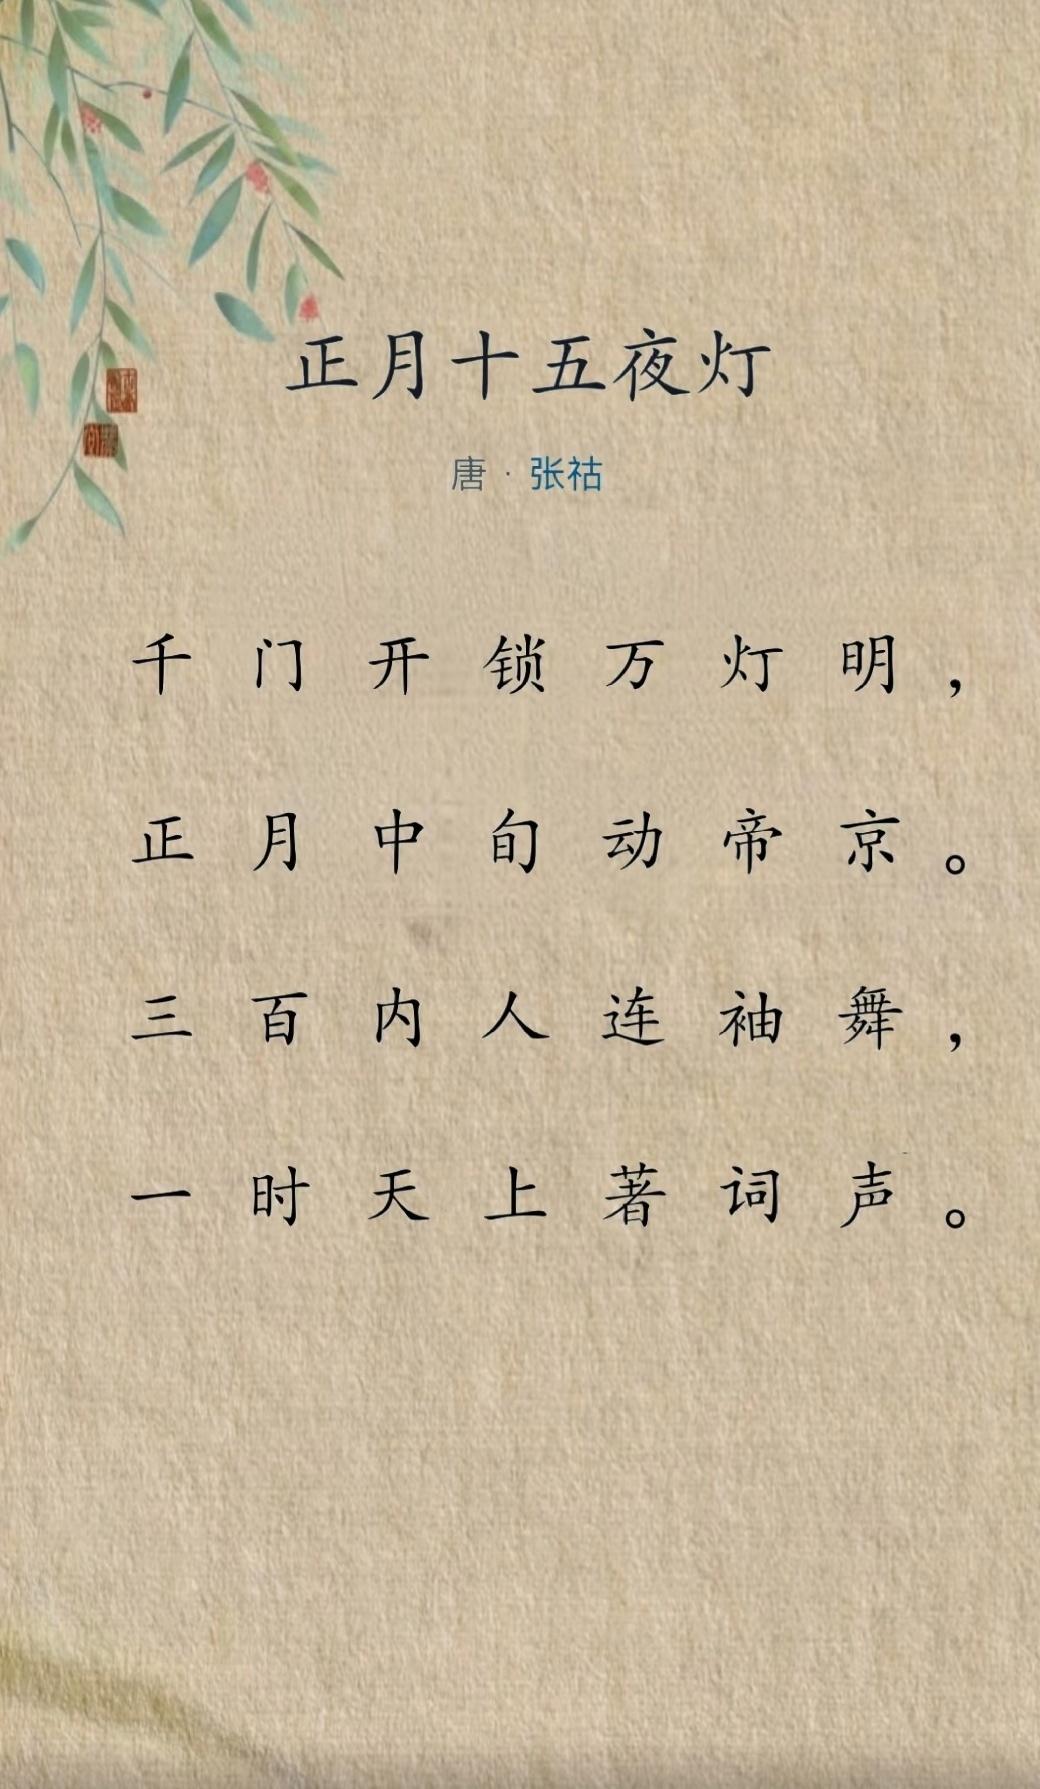 正月十五夜灯
唐·张祜
千门开锁万灯明，
正月中旬动帝京。
三百内人连袖舞，
一时天上著词声。